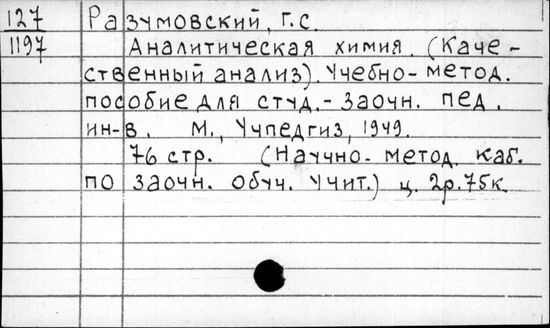 127 Разумовский, Г.С.
1197 Аналитическая химия. (Каче-
ственный анализ). Учебно-метод.
пособие для студ.- заочн. пед.
ин-в. М., Учпедгиз, 1949.
76 стр. (Научно-метод. каб.
по заочн. обуч. учит.) ц. 2р.75к